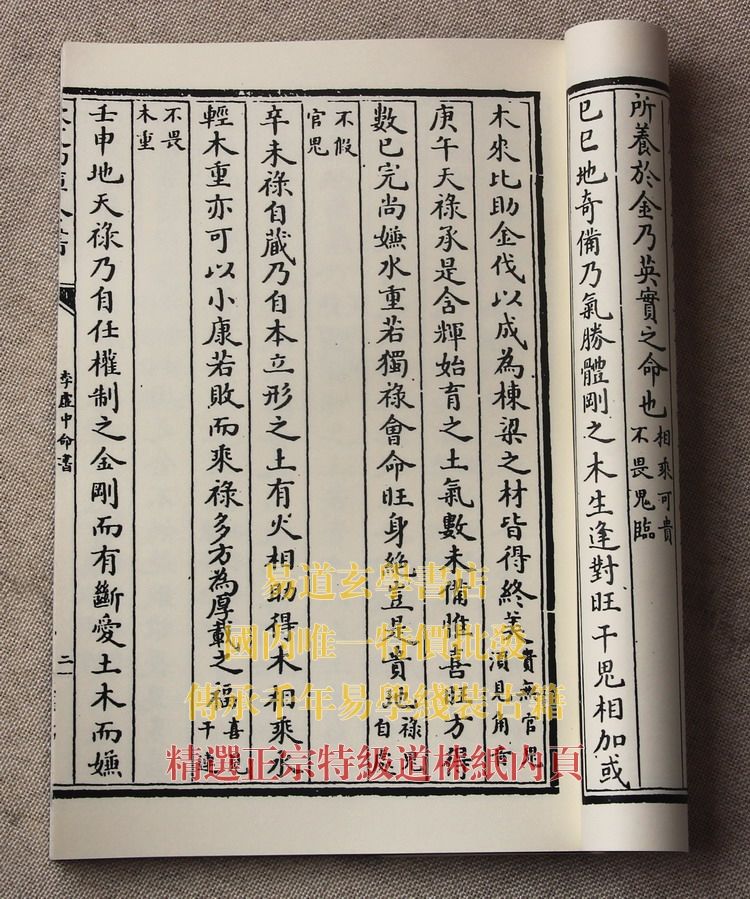 所養於金乃英實之命也
相乘可貴
不畏鬼臨
巳巳地奇備乃氣勝體剛之木生逢對旺干鬼相加或
木來比助金伐以成為棟梁之材皆得終美
貴無官鬼
須見角
庚午天祿承是含輝始育之土氣數未備惟喜旺方得
數已完尚嫌水重若獨祿會命旺身絕豈是貴地
祿鬼
自
不假
官鬼
辛未祿自藏乃自本立形之土有火相助得木相乘水
輕木重亦可以小康若敗而乘祿多方為厚載之福
喜
干
不畏
木重
壬申地天祿乃自任權制之金剛而有斷愛土木而嫌
李虛中命書
易道玄學書店
國內唯一特價批發
傳承千年易學綫装古籍
精選正宗特级道林紙內頁